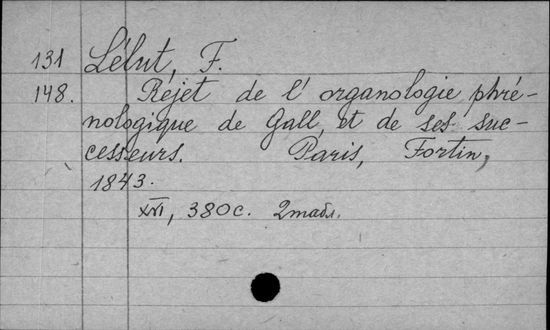 131 Lélut, F.
148. Rejet de l'organologie phré-
nologique de Gall, et de ses suc-
cesseurs. Paris, Fortin,
1843.
XVI, 380c. 2табл.